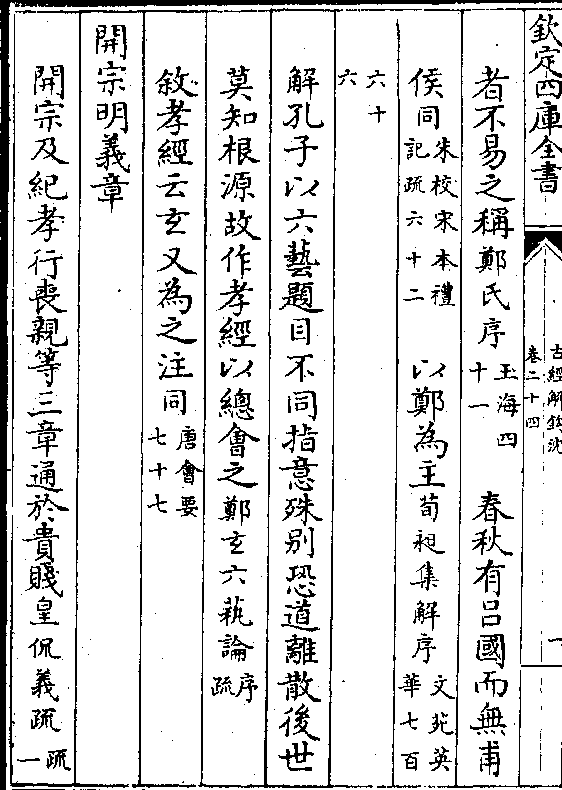 欽定四庫全書
古經解鉤沈
卷二十四
一
者不易之稱鄭氏序玉海四十一 春秋有呂國而無甫
侯同朱校宋本禮記疏六十二 以鄭為主荀昶集解序文苑英華七百
六十六
解孔子以六藝題目不同指意殊别恐道離散後世
莫知根源故作孝經以總會之鄭玄六蓺論序疏
敘孝經云玄又為之注同唐會要七十七
開宗明義章
開宗及紀孝行喪親等三章通於貴賤皇侃義疏疏一